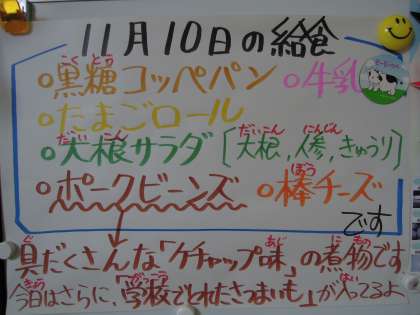 11月10日の給食
○黒糖コッペパン ○牛乳
○たまごロール
○大根サラダ〔大根,人参,きゅうり〕
○ポークビーンズ ○棒チーズ
です
具だくさんな「ケチャップ味」の煮物です
今日はさらに、「学校でとれたさつまいも」が入ってるよ